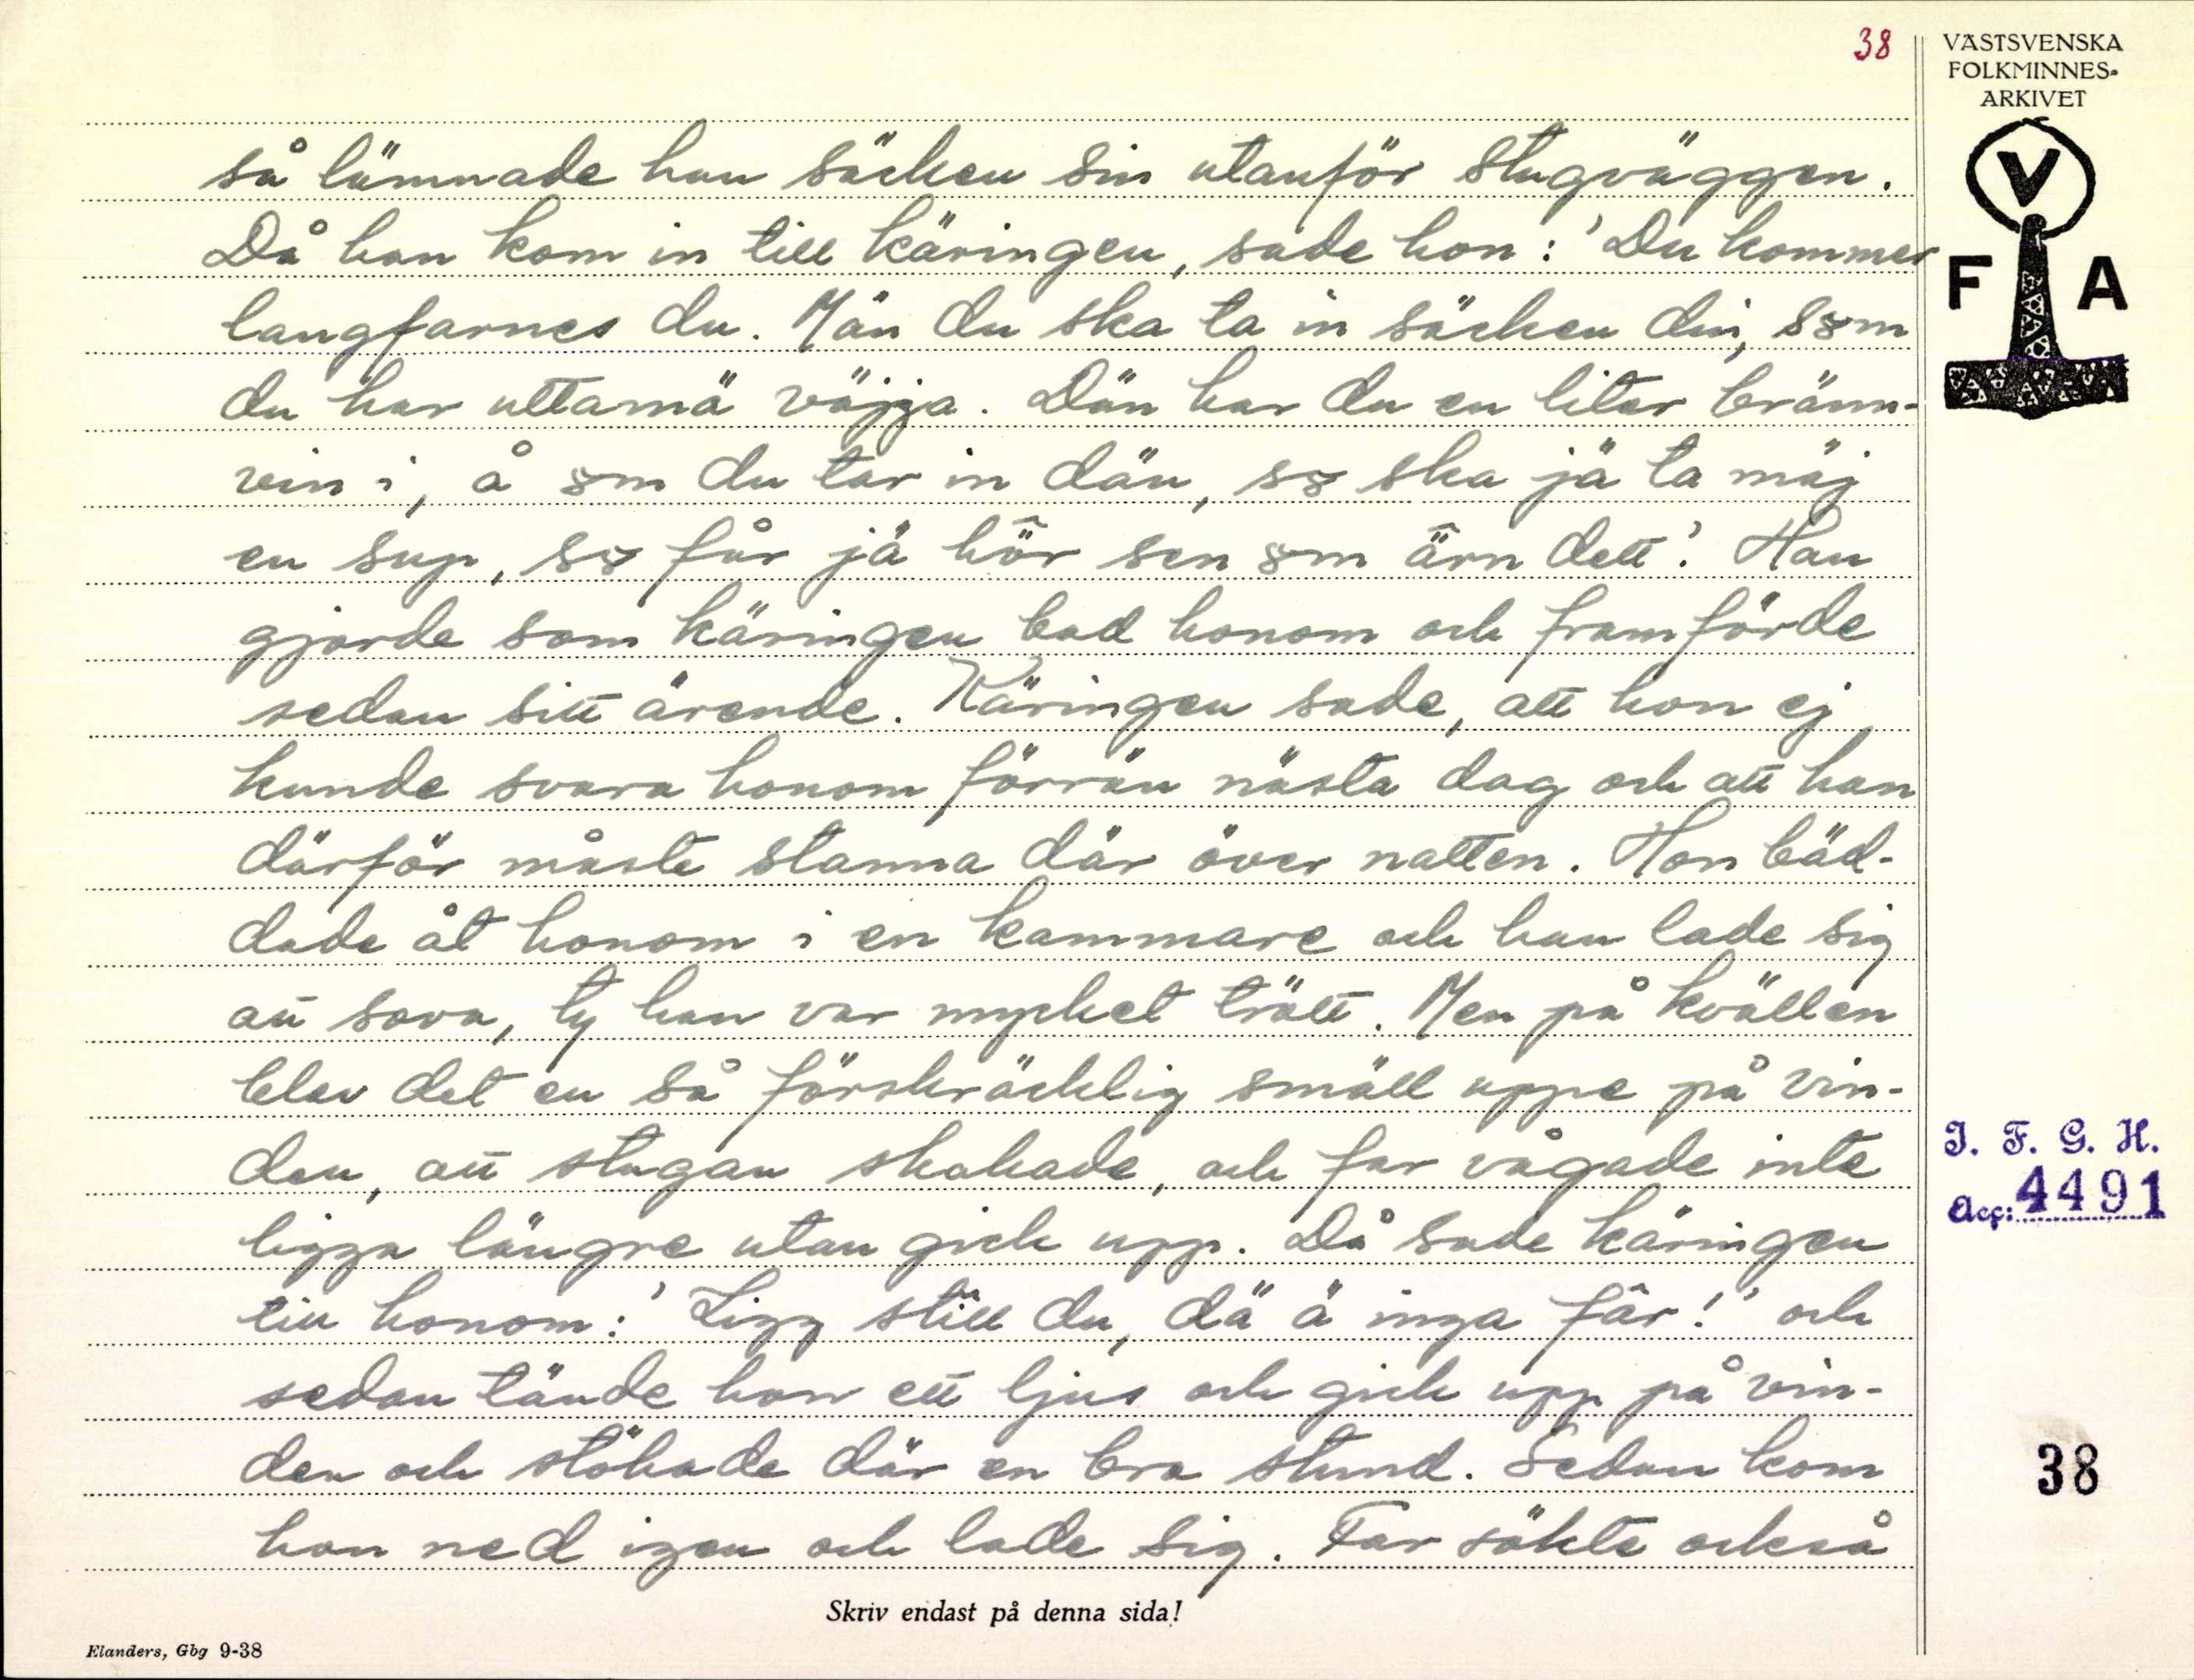 38
VÄSTSVENSKA
FOLKMINNES-
ARKIVET
V
F A
så lämnade han säcken sin utanför stugväggen.
Då han kom in till käringen, sade hon: 'Du kommer
langfarnes du. Män du ska ta in säcken din, sɷm
du har uttamä väjja. Dän har du en liter bränn-
vin i, å ɷm du tar in dän, sɷ ska jä ta mäj
en sup, sɷ får jä hö̂r sen ɷm ä̂rn dett'. Han
gjorde som käringen bad honom och framförde
sedan sitt ärende. Käringen sade, att hon ej
kunde svara honom förrän nästa dag och att han
därför måste stanna där över natten. Hon bäd-
dade åt honom i en kammare och han lade sig
att sova, ty han var mycket trött. Men på kvällen
blev det en så förskräcklig smäll uppe på vin-
den, att stugan skakade, och far vågade inte
ligga längre utan gick upp. Då sade käringen
till honom: 'Ligg still du, dä ä inga fâr!' och
sedan tände hon ett ljus och gick upp på vin-
den och stökade där en bra stund. Sedan kom
hon ned igen och lade sig. Far sökte också
I. F. G. H.
Acc: 4491
38
Skriv endast på denna sida!
Elanders, Gbg 9-38